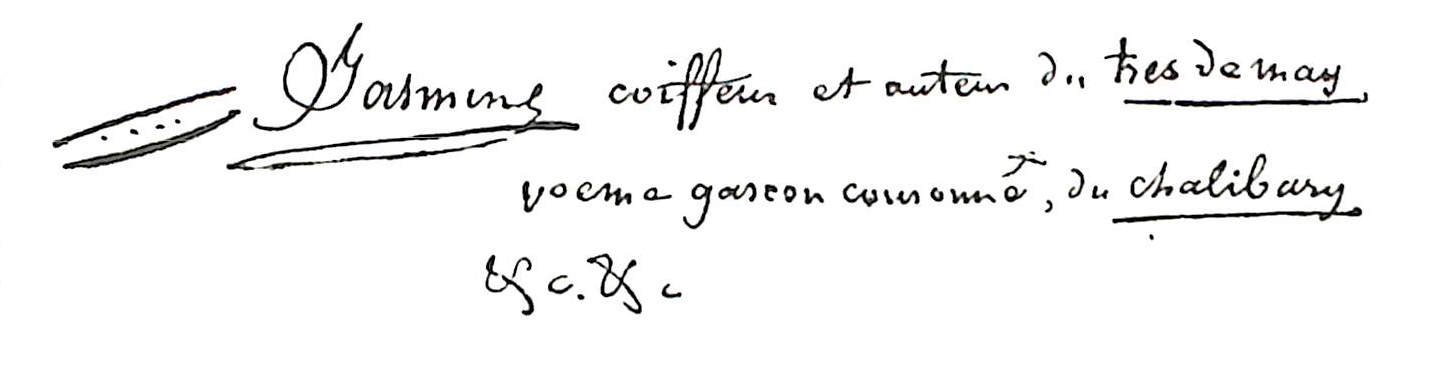 Jasmins coiffeur et auteur du tres de may,
poeme gascon couronné, du chalibary
&c. &c